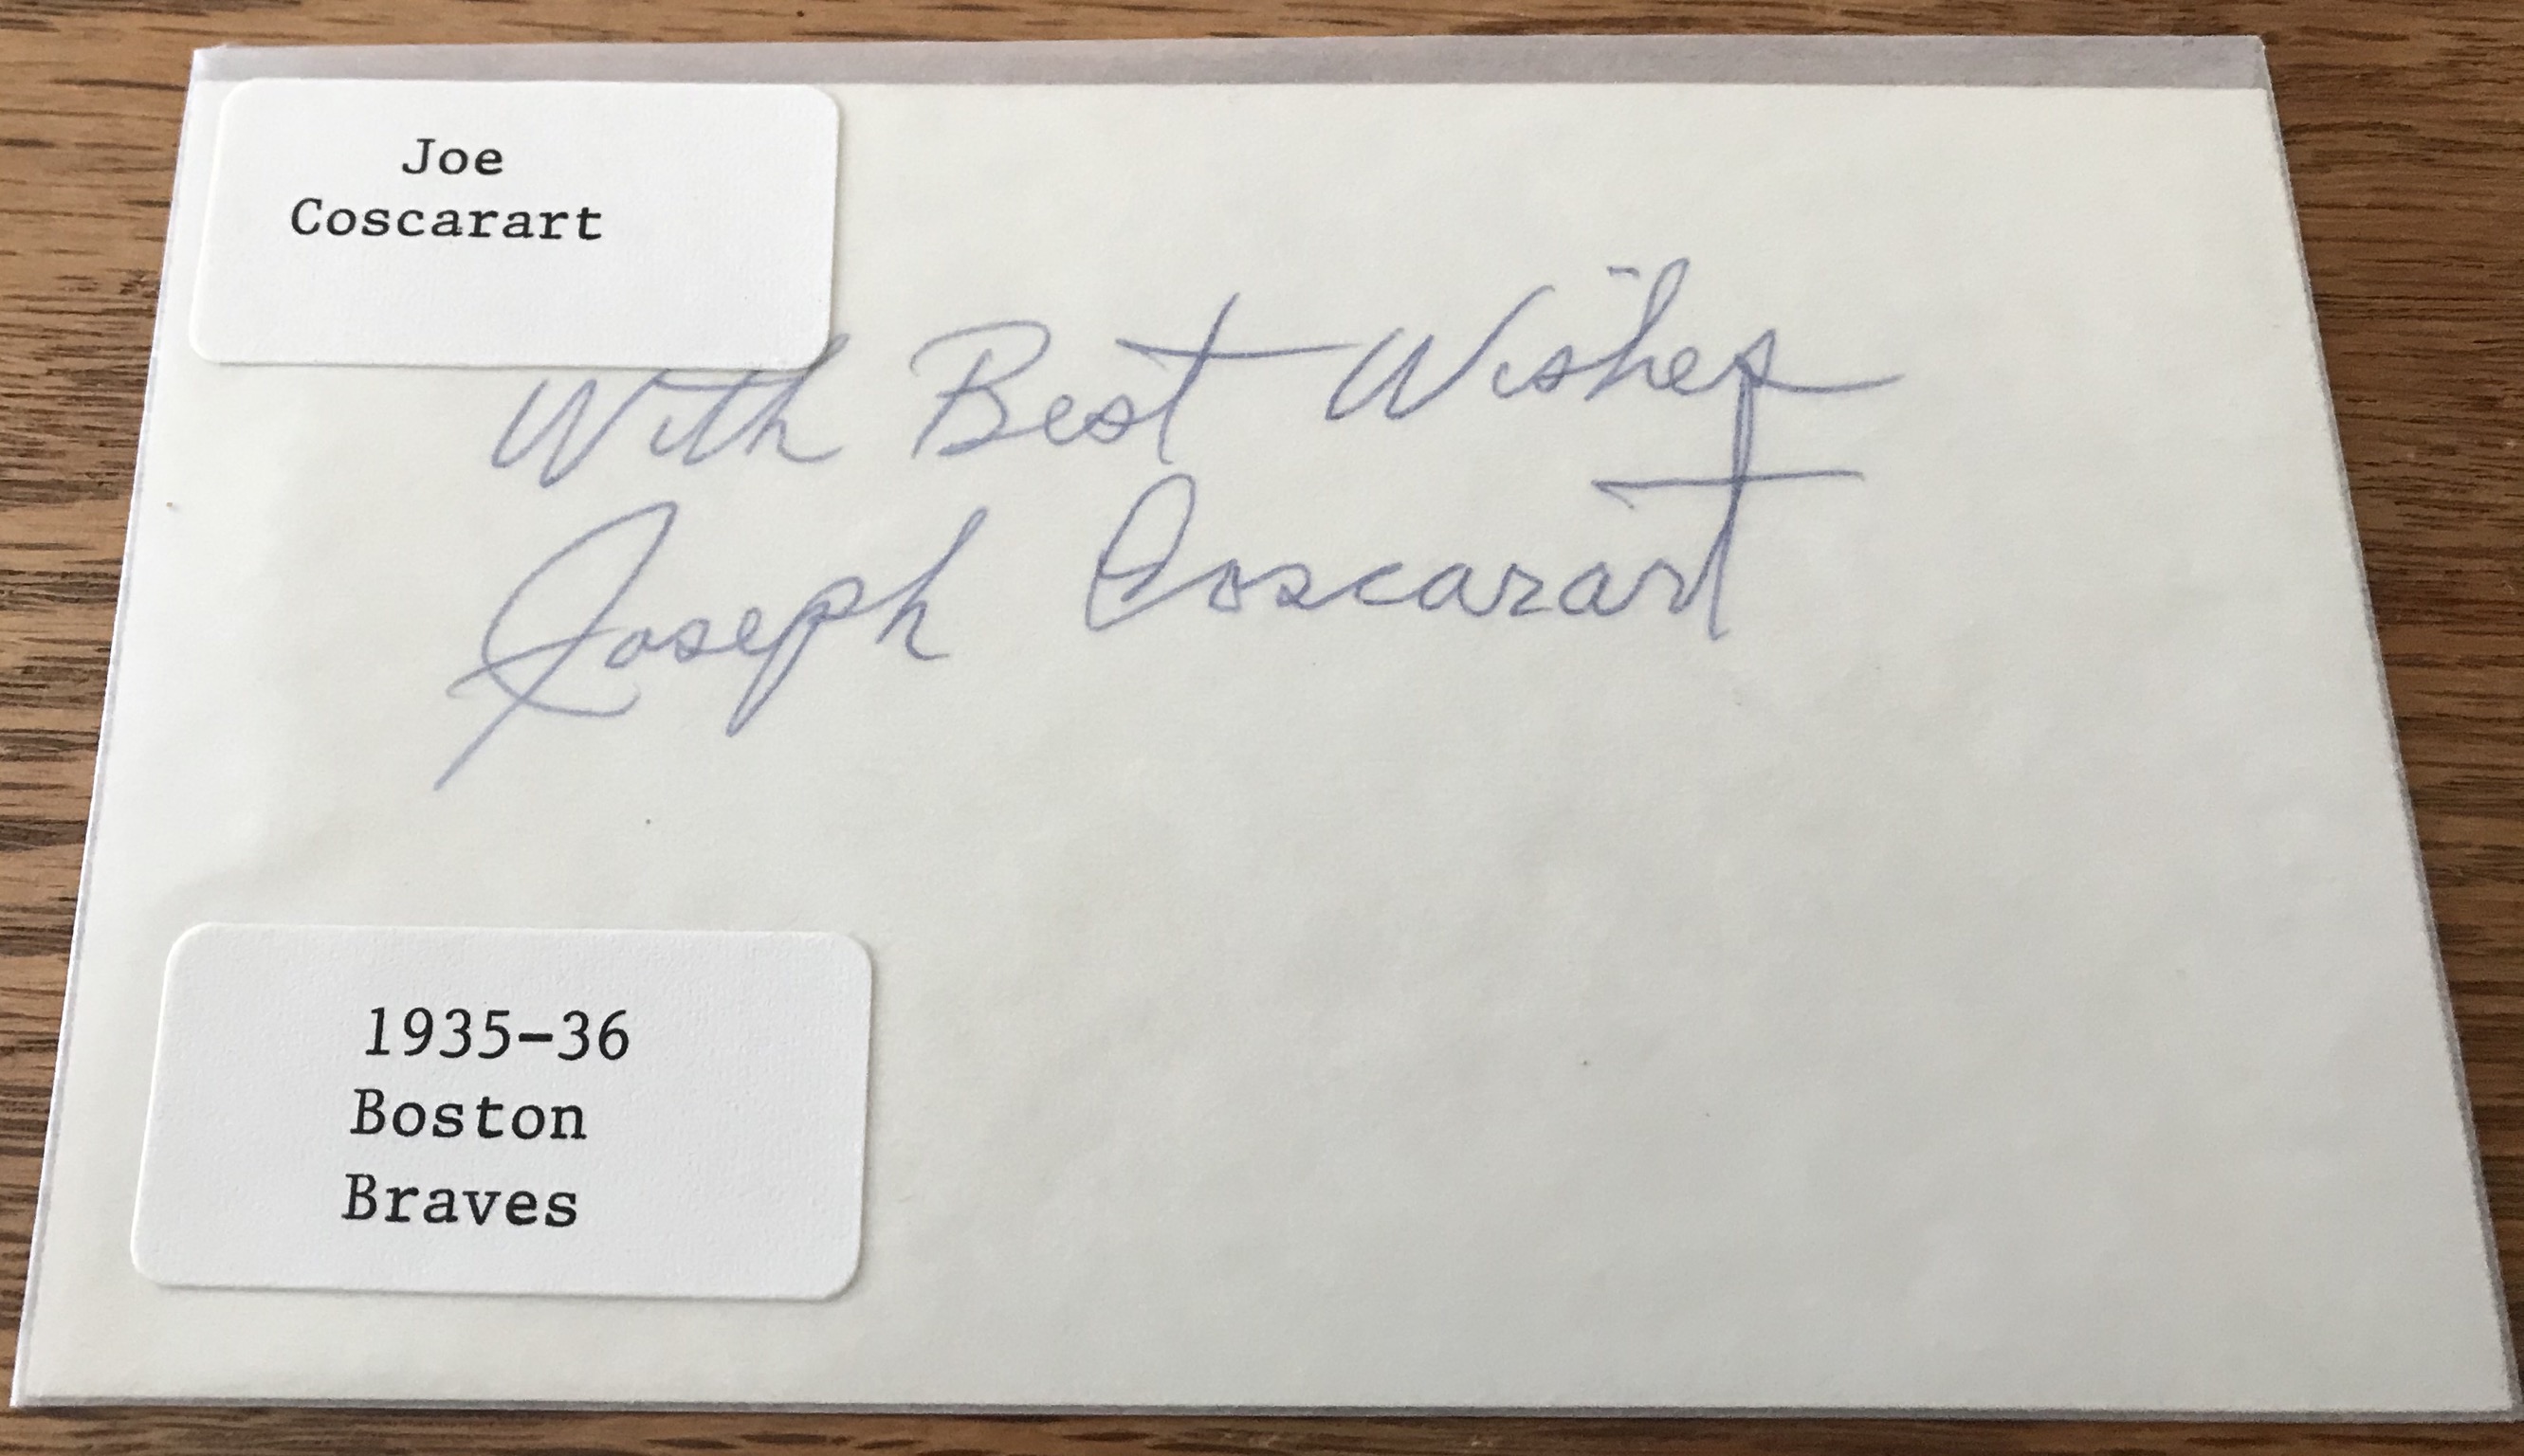 Joe
Coscarart
With Best Wishes
Joseph Coscarart
1935-36
Boston
Braves